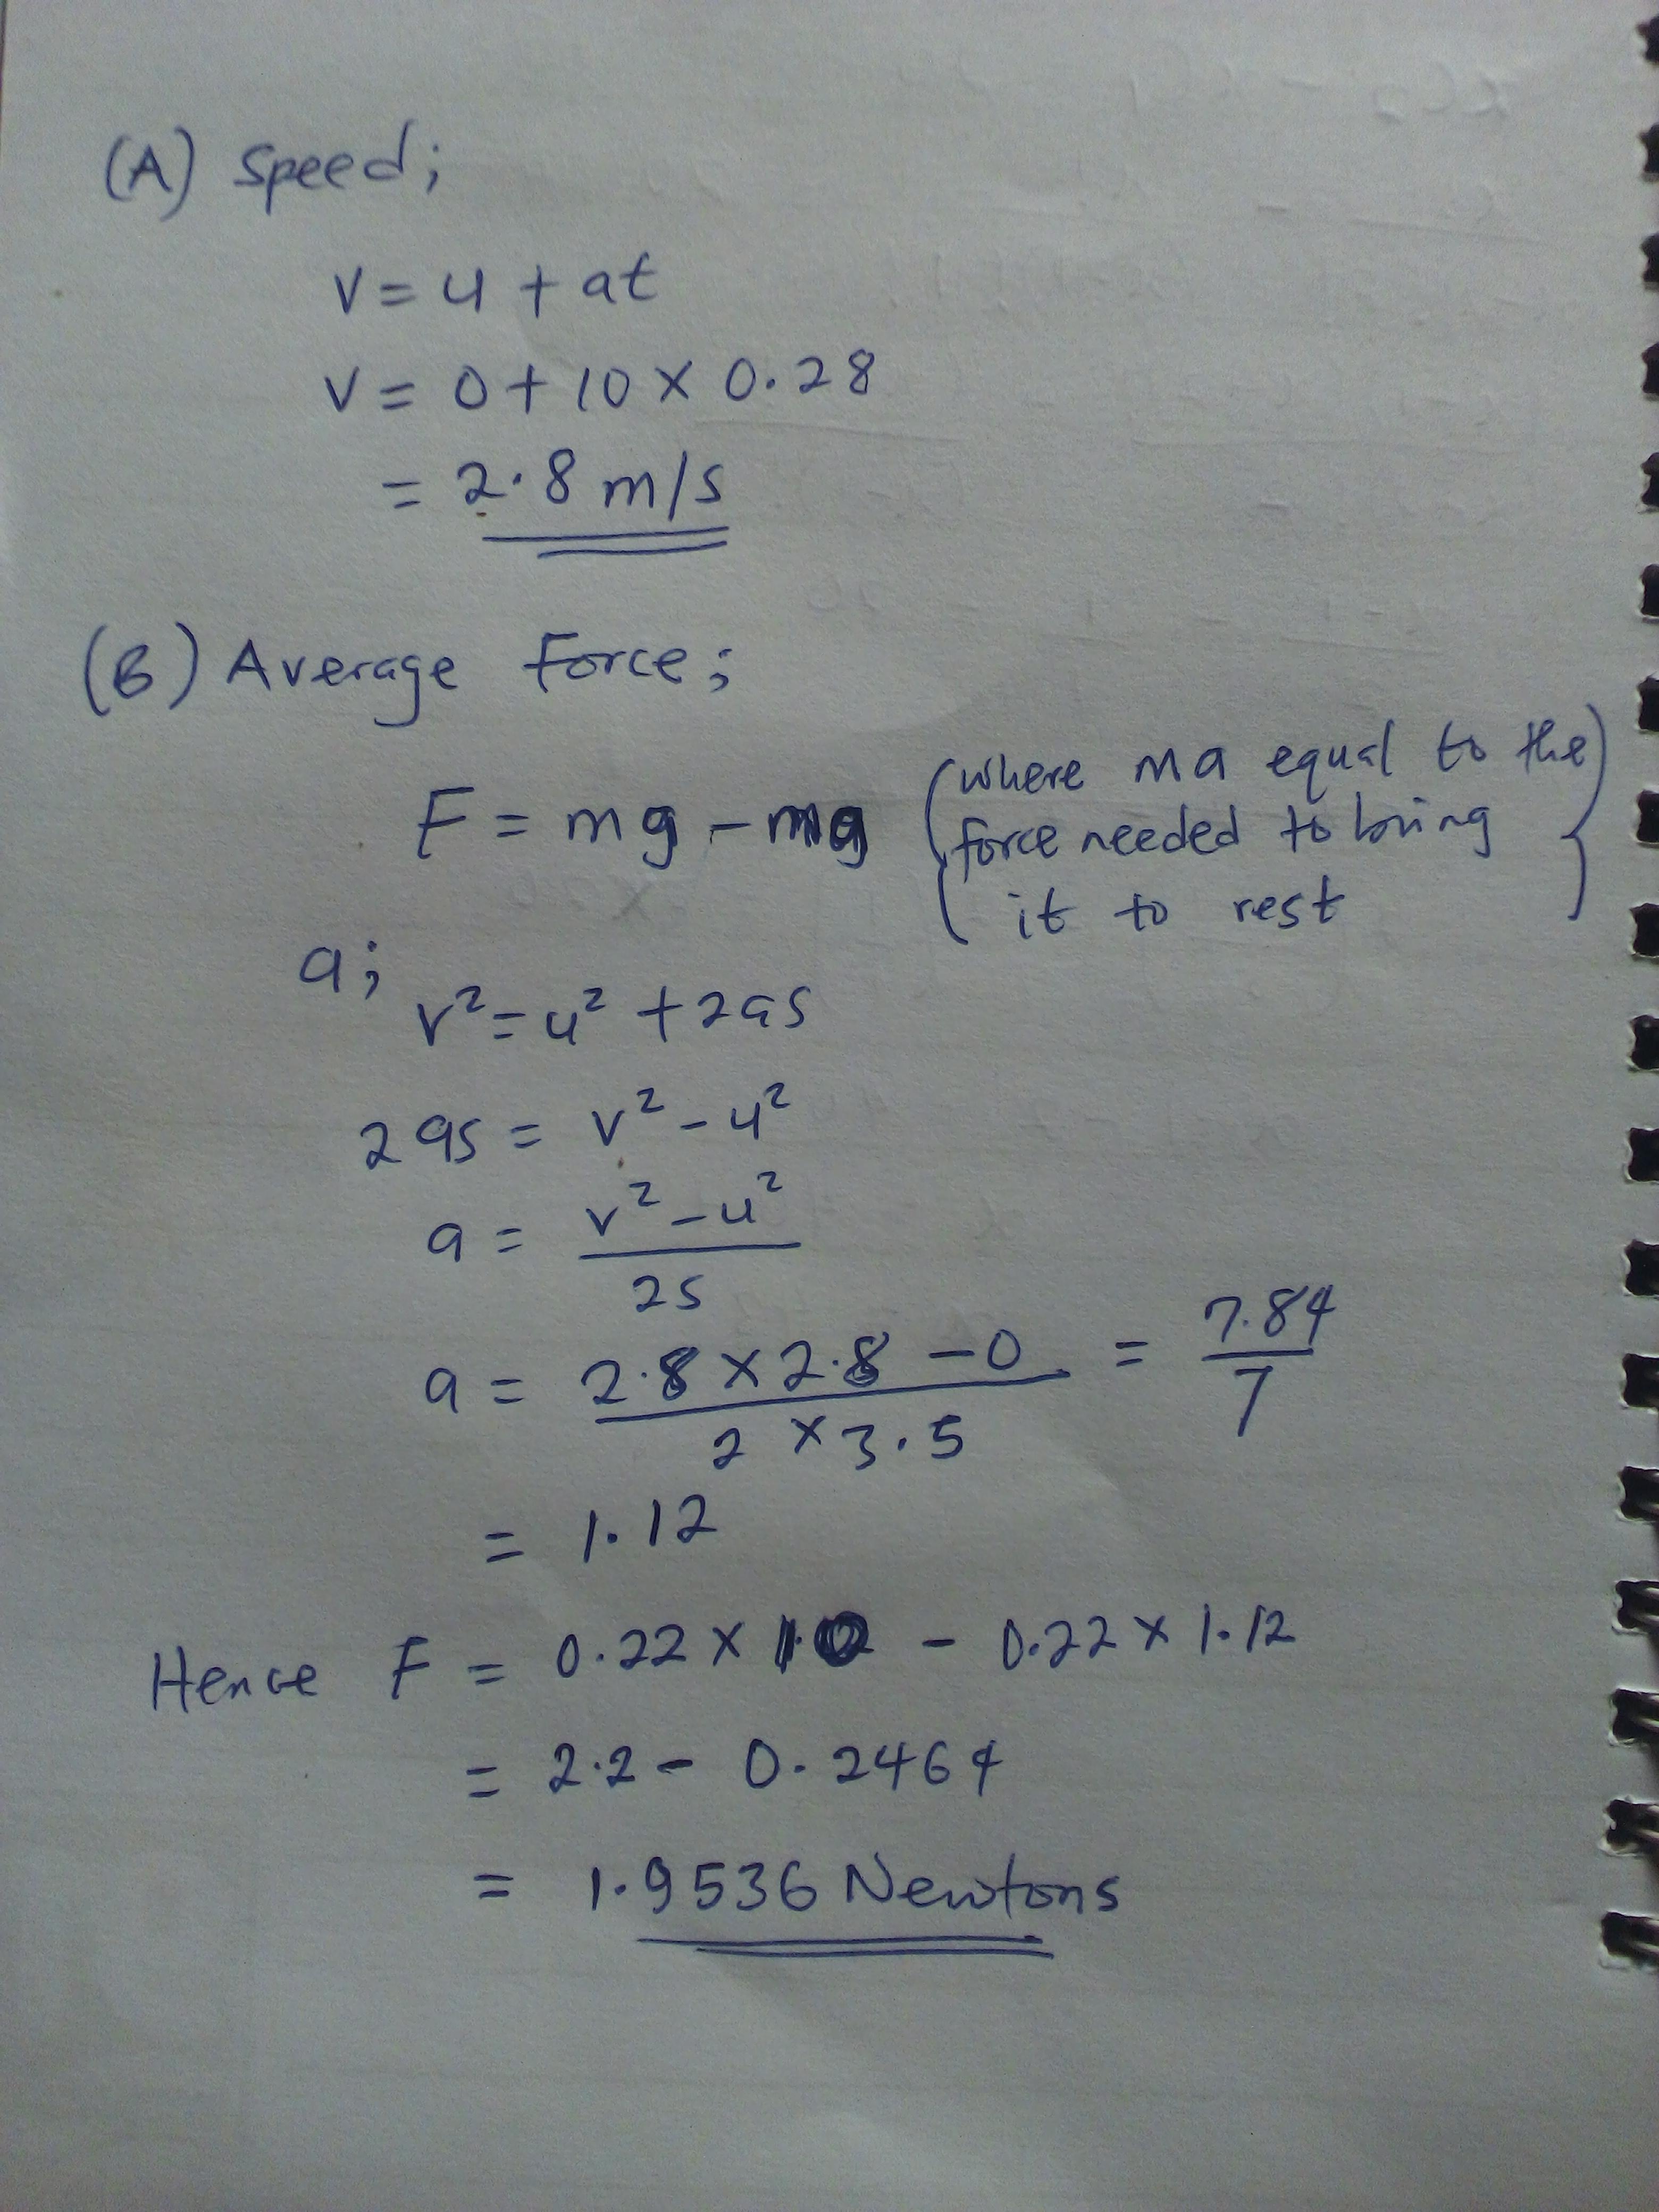 (A) Speed;
V = u + at
V = 0 + 10 × 0.28
= 2.8 m/s
(B) Average Force;
F = mg - ma (where ma equal to the
force needed to bring
it to rest)
a;
v² = u² + 2as
2as = v² - u²
a = (v² - u²) / 2s
a = (2.8 × 2.8 - 0) / (2 × 3.5) = 7.84 / 7
= 1.12
Hence F = 0.22 × 10 - 0.22 × 1.12
= 2.2 - 0.2464
= 1.9536 Newtons